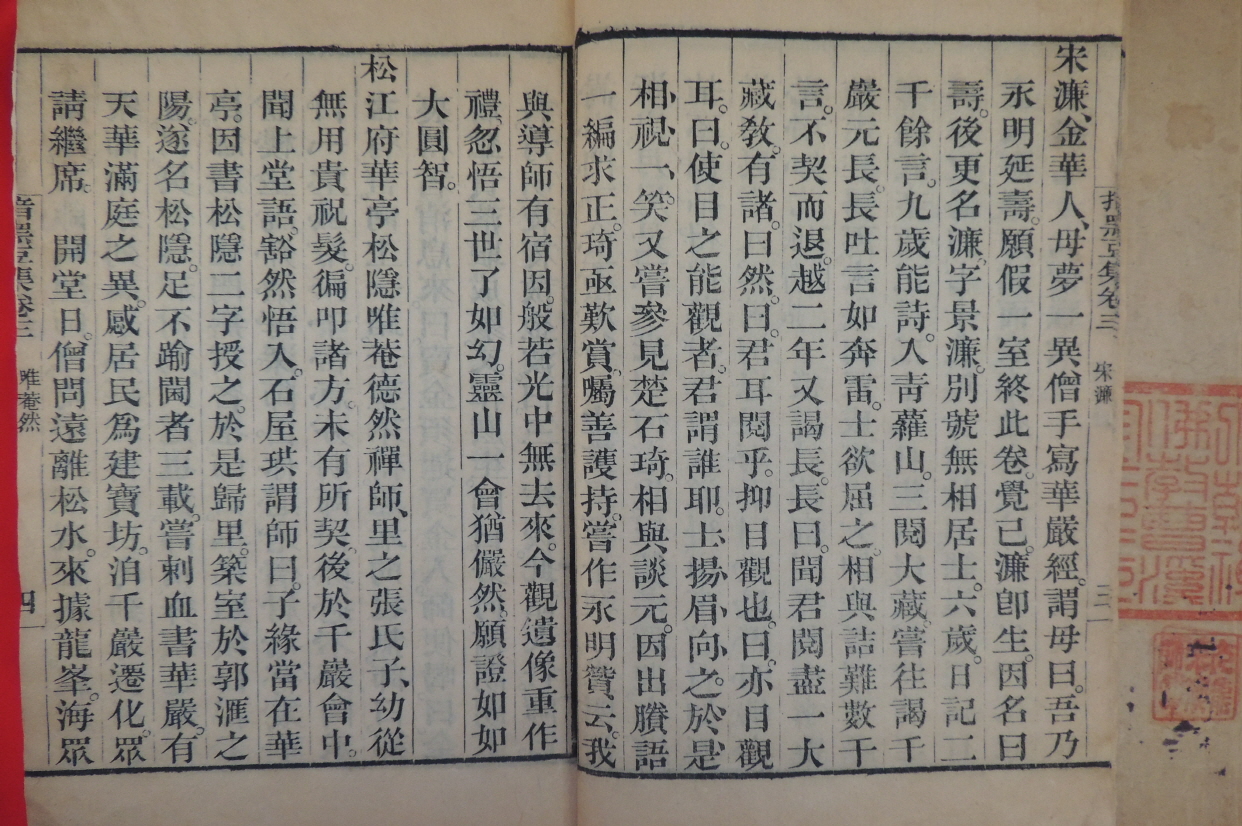 宋濂、金華人、母夢一異僧手寫華嚴經。謂母曰。吾乃
永明延壽。願假一室終此卷。覺已。濂卽生。因名曰
壽。後更名濂。字景濂。別號無相居士。六歲。日記二
千餘言。九歲能詩。入靑蘿山。三閱大藏。嘗往謁千
嚴元長。長吐言如奔雷。士欲屈之。相與詰難數千
言。不契而退。越二年又謁長。長曰。聞君閱盡一大
藏敎。有諸。曰。然。曰。君耳閱乎。抑目觀也。曰。亦目觀
耳。曰。使目之能觀者。君謂誰耶。士揚眉向之。於是
相視一笑。又嘗參見楚石琦。相與談元。因出賸語
一編求正。琦亟歎賞。囑善護持。嘗作永明贊、云。我
與導師有宿因。般若光中無去來。今觀遺像重作
禮。忽悟三世了如幻。靈山一會猶儼然。願證如如
大圓智。
松江府華亭松隱唯菴德然禪師、里之張氏子、幼從
無用貴祝髮。徧叩諸方。未有所契。後於千嚴會中。
聞上堂語。豁然悟入。石屋珙謂師曰。子緣當在華
亭。因書松隱二字授之。於是歸里。築室於郭滙之
陽。遂名松隱。足不踰閫者三載。嘗刺血書華嚴。有
天華滿庭之異。感居民爲建寶坊。洎千嚴遷化。眾
請繼席。 開堂日。僧問遠離松水。來據龍峯。海眾
指黑豆集卷三 宋濂 三
指黑豆集卷三 唯菴然 四